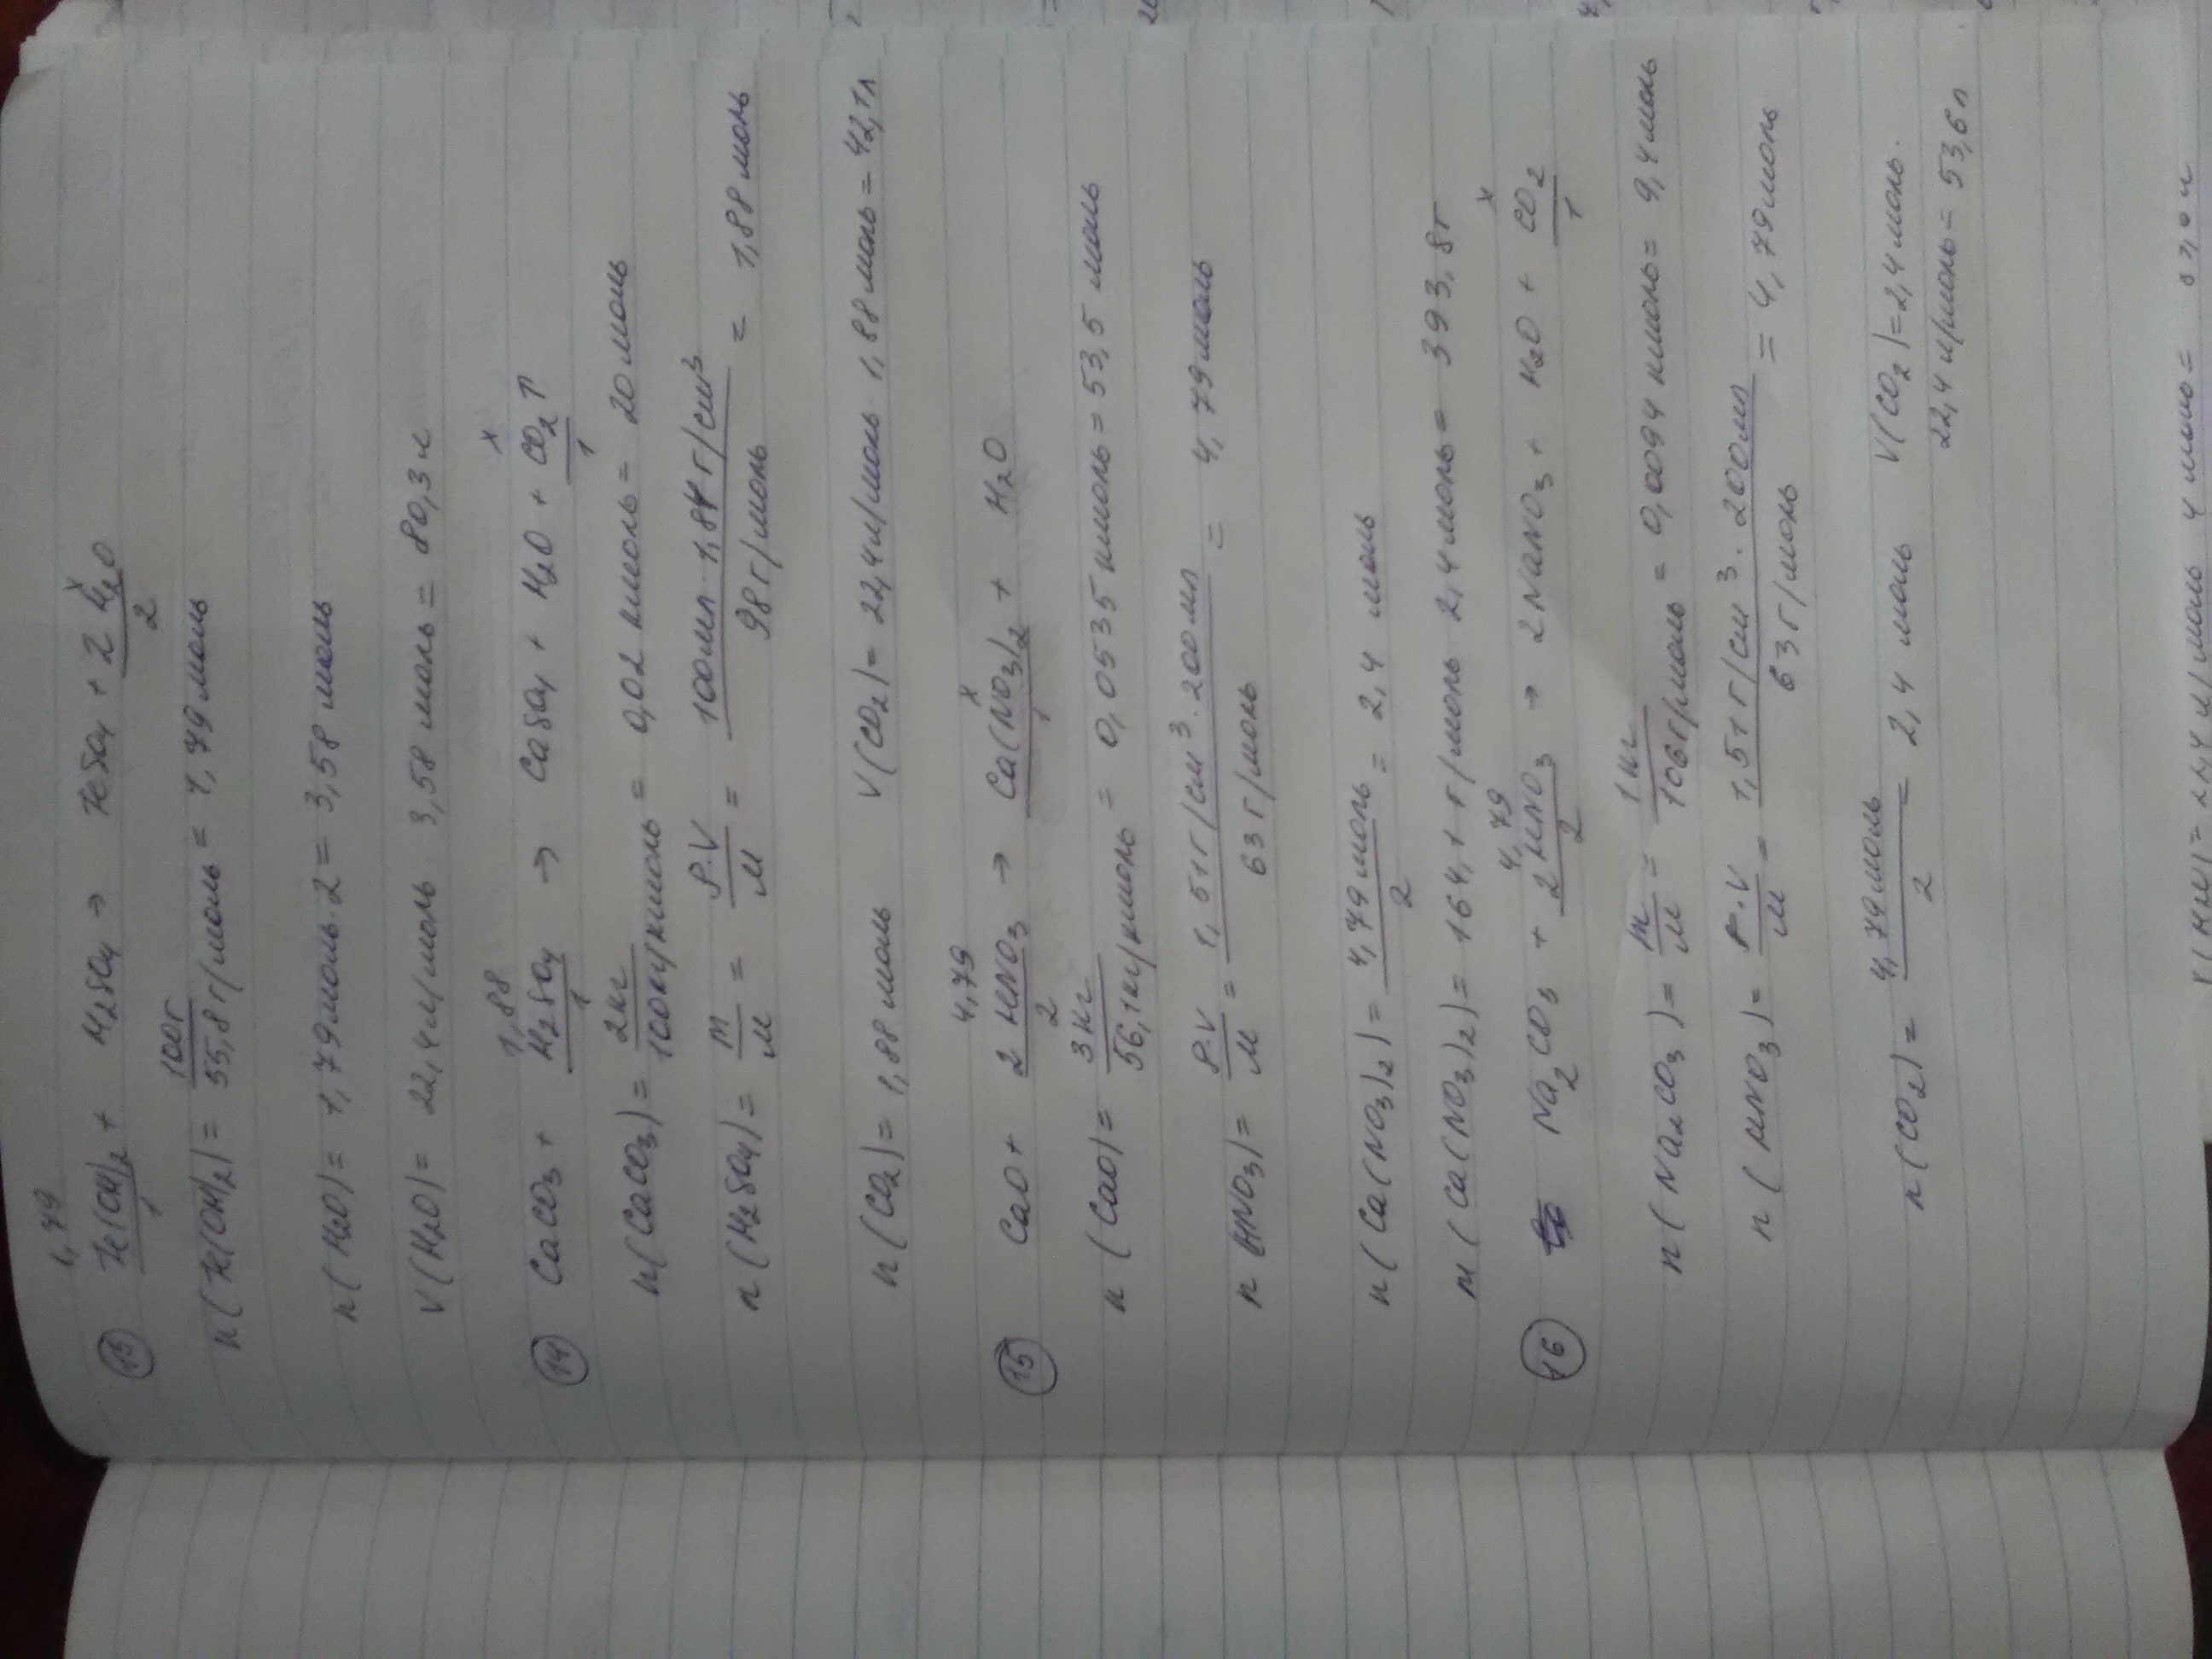 1,79 x
13 Fe(OH)2 + H2SO4 → FeSO4 + 2 H2O
1 2
n(Fe(OH)2) = 100г / 55,8 г/моль = 1,79 моль
n(H2O) = 1,79 моль · 2 = 3,58 моль
V(H2O) = 22,4 л/моль · 3,58 моль = 80,3 л
1,88 x
14 CaCO3 + H2SO4 → CaSO4 + H2O + CO2↑
1 1
n(CaCO3) = 2кг / 100кг/кмоль = 0,02 кмоль = 20 моль
n(H2SO4) = m/M = ρ·V/M = 100мл · 1,84 г/см³ / 98 г/моль = 1,88 моль
n(CO2) = 1,88 моль V(CO2) = 22,4 л/моль · 1,88 моль = 42,1 л
4,79 x
15 CaO + 2 HNO3 → Ca(NO3)2 + H2O
2 1
n(CaO) = 3 кг / 56,1 кг/кмоль = 0,0535 кмоль = 53,5 моль
n(HNO3) = ρ·V/M = 1,51 г/см³ · 200мл / 63 г/моль = 4,79 моль
n(Ca(NO3)2) = 4,79 моль / 2 = 2,4 моль
m(Ca(NO3)2) = 164,1 г/моль · 2,4 моль = 393,8г
4,79 x
16 Na2CO3 + 2 HNO3 → 2NaNO3 + H2O + CO2
2 1
n(Na2CO3) = m/M = 1 кг / 106 г/моль = 0,0094 кмоль = 9,4 моль
n(HNO3) = ρ·V/M = 1,51 г/см³ · 200мл / 63 г/моль = 4,79 моль
n(CO2) = 4,79 моль / 2 = 2,4 моль V(CO2) = 2,4 моль ·
22,4 л/моль = 53,6 л